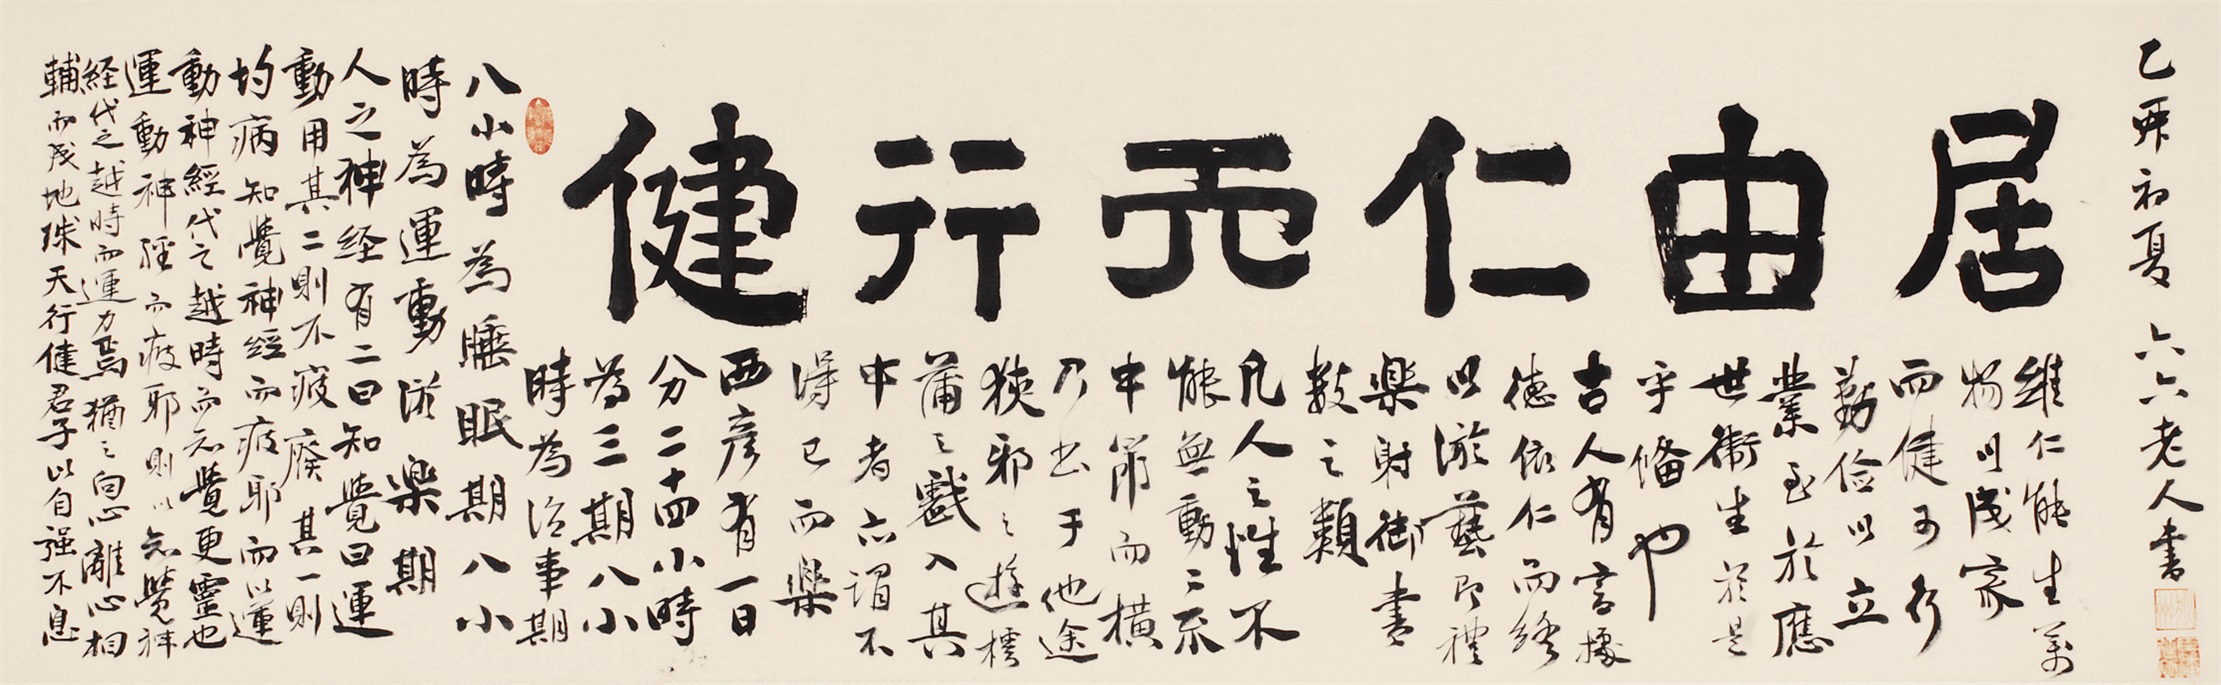 乙酉初夏 六六老人書
居由仁天行健
維仁能生萬
物川成家
而健予行
勤儉以立
業至於應
世衛生於是
乎備也
吉人有言據
德依仁而終
以游藝即禮
樂射御書
數之類
凡人之性不
能無動二不
中節而橫
乃出于他途
狹邪之遊樗
蒲之戲入其
中者亦謂不
得已而樂
西彥有一日
分二十四小時
為三期八小
時為治事期
八小時為睡眠期八小
時為運動游樂期
人之神经有二曰知覺曰運
動用其二則不疲廢其一則
灼病知覺神經而疲耶而以運
動神經代之越時而知覺更靈也
運動神經而疲耶則以知覺神
経代之越時而運力焉猶之向心離心相
輔而成地球天行健君子以自强不息